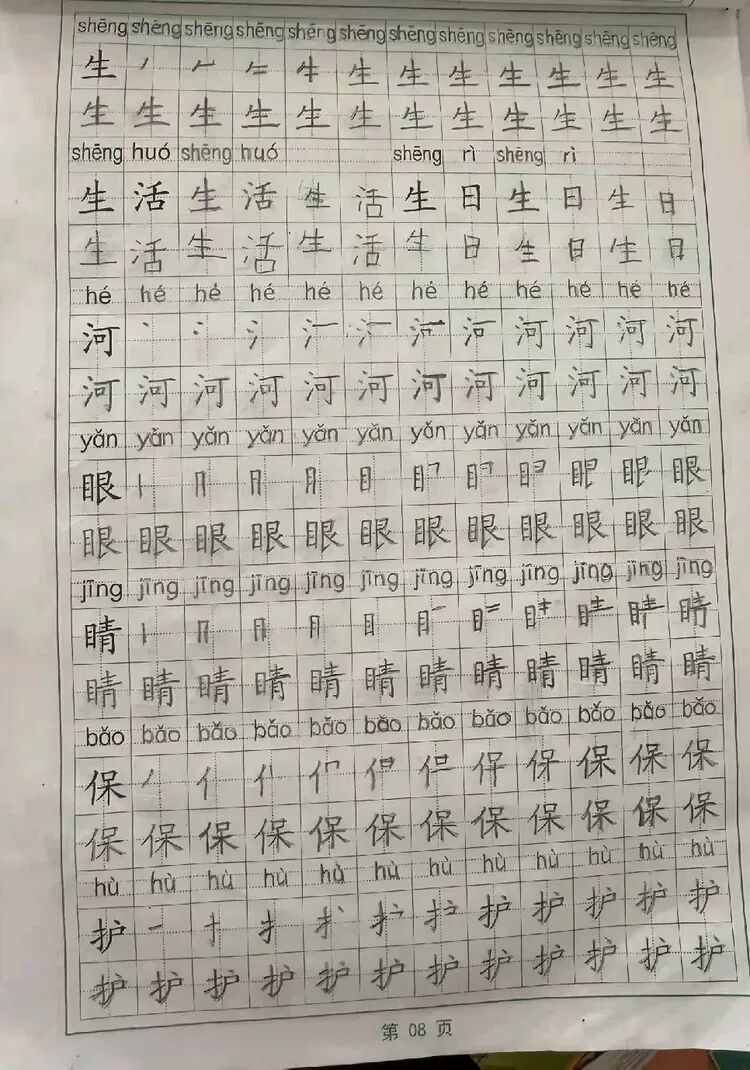 shēng shēng shēng shēng shēng shēng shēng shēng shēng shēng shēng shēng
生 生 生 生 生 生 生 生
生 生 生 生 生 生 生 生 生 生 生 生
shēng huó shēng huó shēng rì shēng rì
生 活 生 活 生 活 生 日 生 日 生 日
生 活 生 活 生 活 生 日 生 日 生 日
hé hé hé hé hé hé hé hé hé hé hé hé
河 河 河 河 河
河 河 河 河 河 河 河 河 河 河 河 河
yǎn yǎn yǎn yǎn yǎn yǎn yǎn yǎn yǎn yǎn yǎn yǎn
眼 眼 眼
眼 眼 眼 眼 眼 眼 眼 眼 眼 眼 眼 眼
jīng jīng jīng jīng jīng jīng jīng jīng jīng jīng jīng jīng
睛 睛
睛 睛 睛 睛 睛 睛 睛 睛 睛 睛 睛 睛
bǎo bǎo bǎo bǎo bǎo bǎo bǎo bǎo bǎo bǎo bǎo bǎo
保 保 保 保
保 保 保 保 保 保 保 保 保 保 保 保
hù hù hù hù hù hù hù hù hù hù hù hù
护 护 护 护 护 护
护 护 护 护 护 护 护 护 护 护 护 护
第 08 页